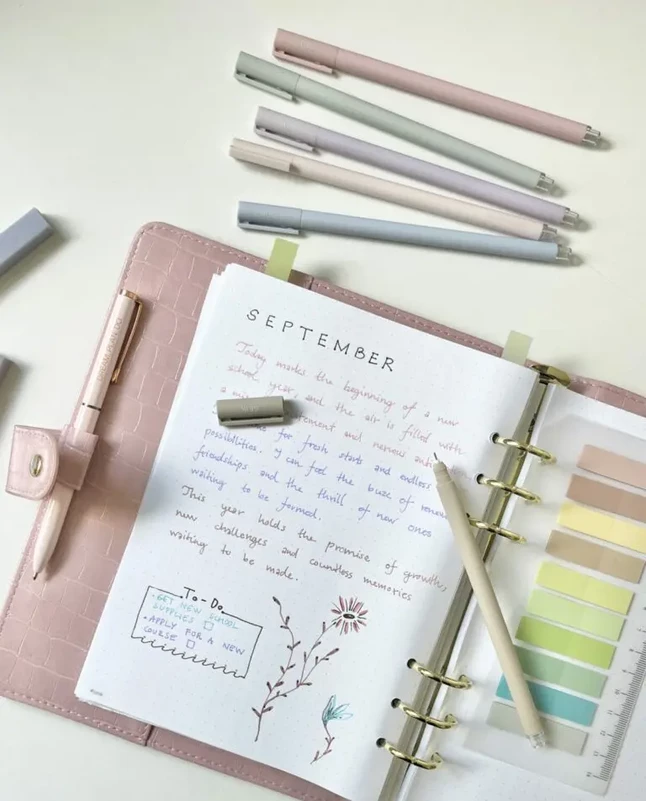 SEPTEMBER
Today marks the beginning of a new
school year, and the air is filled with
a mix excitement and nervous anti
time for fresh starts and endless
possibilities. I can feel the buzz of
friendships, and the thrill of new ones
waiting to be formed.
This year holds the promise of growth,
new challenges and countless memories
waiting to be made.
To-Do
•GET NEW SCHOOL
SUPPLIES
•APPLY FOR A NEW
COURSE